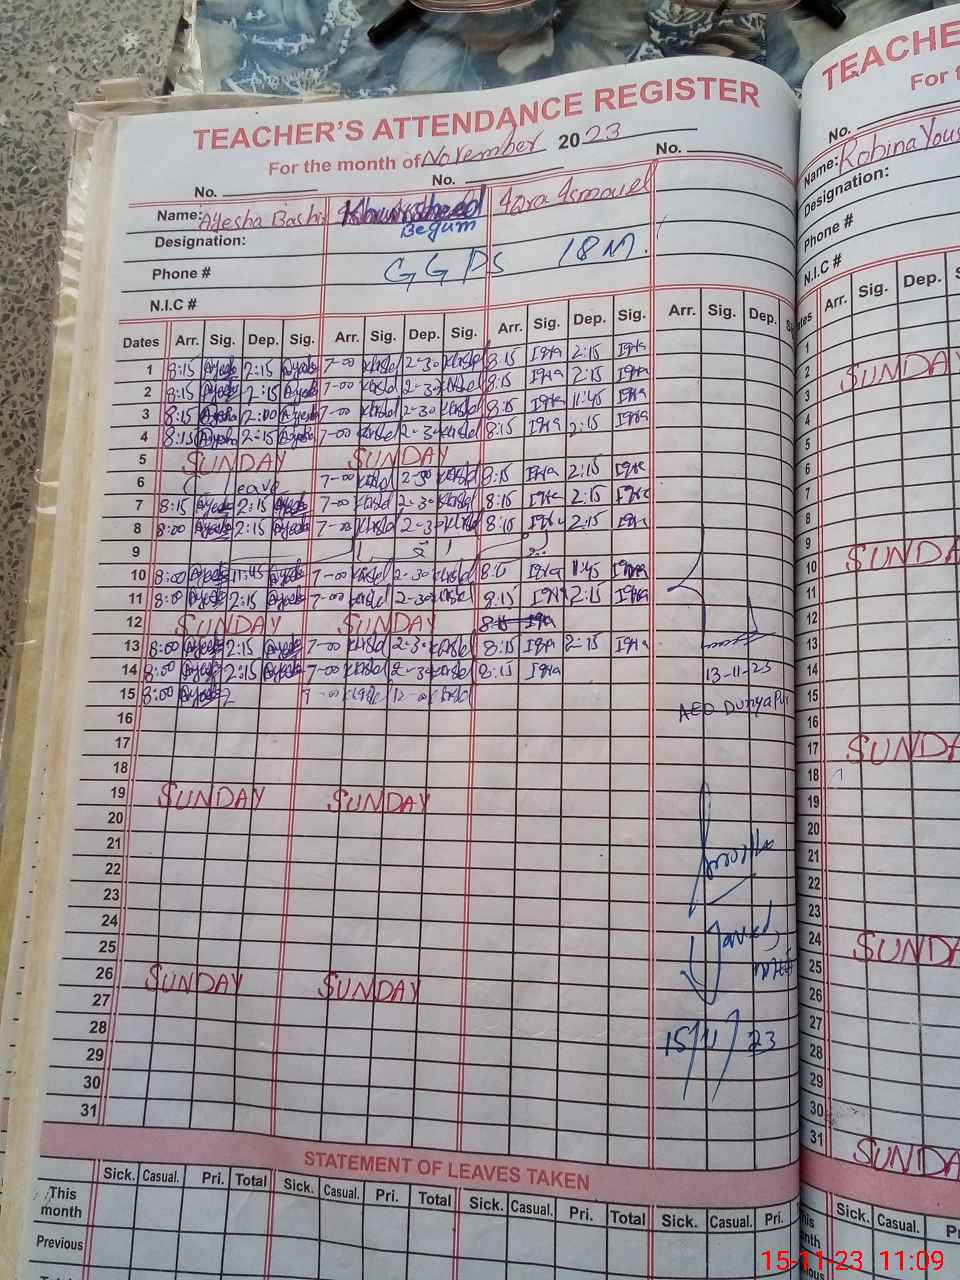 TEACHER'S ATTENDANCE REGISTER
For the month of November 2023
No. No. No.
Name: Ayesha Bashir Khursheed Begum Iqra Ismaeel
Designation:
Phone # GGPS 18M.
N.I.C #
Dates Arr. Sig. Dep. Sig. Arr. Sig. Dep. Sig. Arr. Sig. Dep. Sig. Arr. Sig. Dep.
1 8:15 Ayesha 2:15 Ayesha 7-00 Khrshd 2-30 Khrshd 8:15 Iqra 2:15 Iqra
2 8:15 Ayesha 2:15 Ayesha 7-00 Khrshd 2-30 Khrshd 8:15 Iqra 2:15 Iqra
3 8:15 Ayesha 2:00 Ayesha 7-00 Khrshd 2-30 Khrshd 8:15 Iqra 11:45 Iqra
4 8:15 Ayesha 2:15 Ayesha 7-00 Khrshd 2-30 Khrshd 8:15 Iqra 2:15 Iqra
5 SUNDAY SUNDAY
6 leave 7-00 Khrshd 2-30 Khrshd 8:15 Iqra 2:15 Iqra
7 8:15 Ayesha 2:15 Ayesha 7-00 Khrshd 2-30 Khrshd 8:15 Iqra 2:15 Iqra
8 8:00 Ayesha 2:15 Ayesha 7-00 Khrshd 2-30 Khrshd 8:15 Iqra 2:15 Iqra
9
10 8:00 Ayesha 11:45 Ayesha 7-00 Khrshd 2-30 Khrshd Iqra 11:45 Iqra
11 8:00 Ayesha 2:15 Ayesha 7-00 Khrshd 2-30 Khrshd 8:15 Iqra 2:15 Iqra
12 SUNDAY SUNDAY
13 8:00 Ayesha 2:15 Ayesha 7-00 Khrshd 2-30 Khrshd 8:15 Iqra 2:15 Iqra
14 8:00 Ayesha 2:15 Ayesha 7-00 Khrshd 2-30 Khrshd 8:15 Iqra
13-11-23
15 8:00 Ayesha 2 7-00 Khrshd 12-00 Khrshd
AEO Dunyapur
16
17
18
19 SUNDAY SUNDAY
20
21
22
23
24
25
26 SUNDAY SUNDAY
27
28
15/11/23
29
30
31
STATEMENT OF LEAVES TAKEN
Sick. Casual. Pri. Total Sick. Casual. Pri. Total Sick. Casual. Pri. Total Sick. Casual. Pri.
This month
Previous
TEACHE
For t
No.
Name: Robina Yous
Designation:
Phone #
N.I.C #
Arr. Sig. Dep.
1
2 SUNDAY
3
4
5
6
7
8
9 SUNDA
10
11
12
13
14
15
16 SUNDA
17
18
19
20
21
22
23 SUNDA
24
25
26
27
28
29
30 SUNDA
31
Sick. Casual. P
15-11-23 11:09